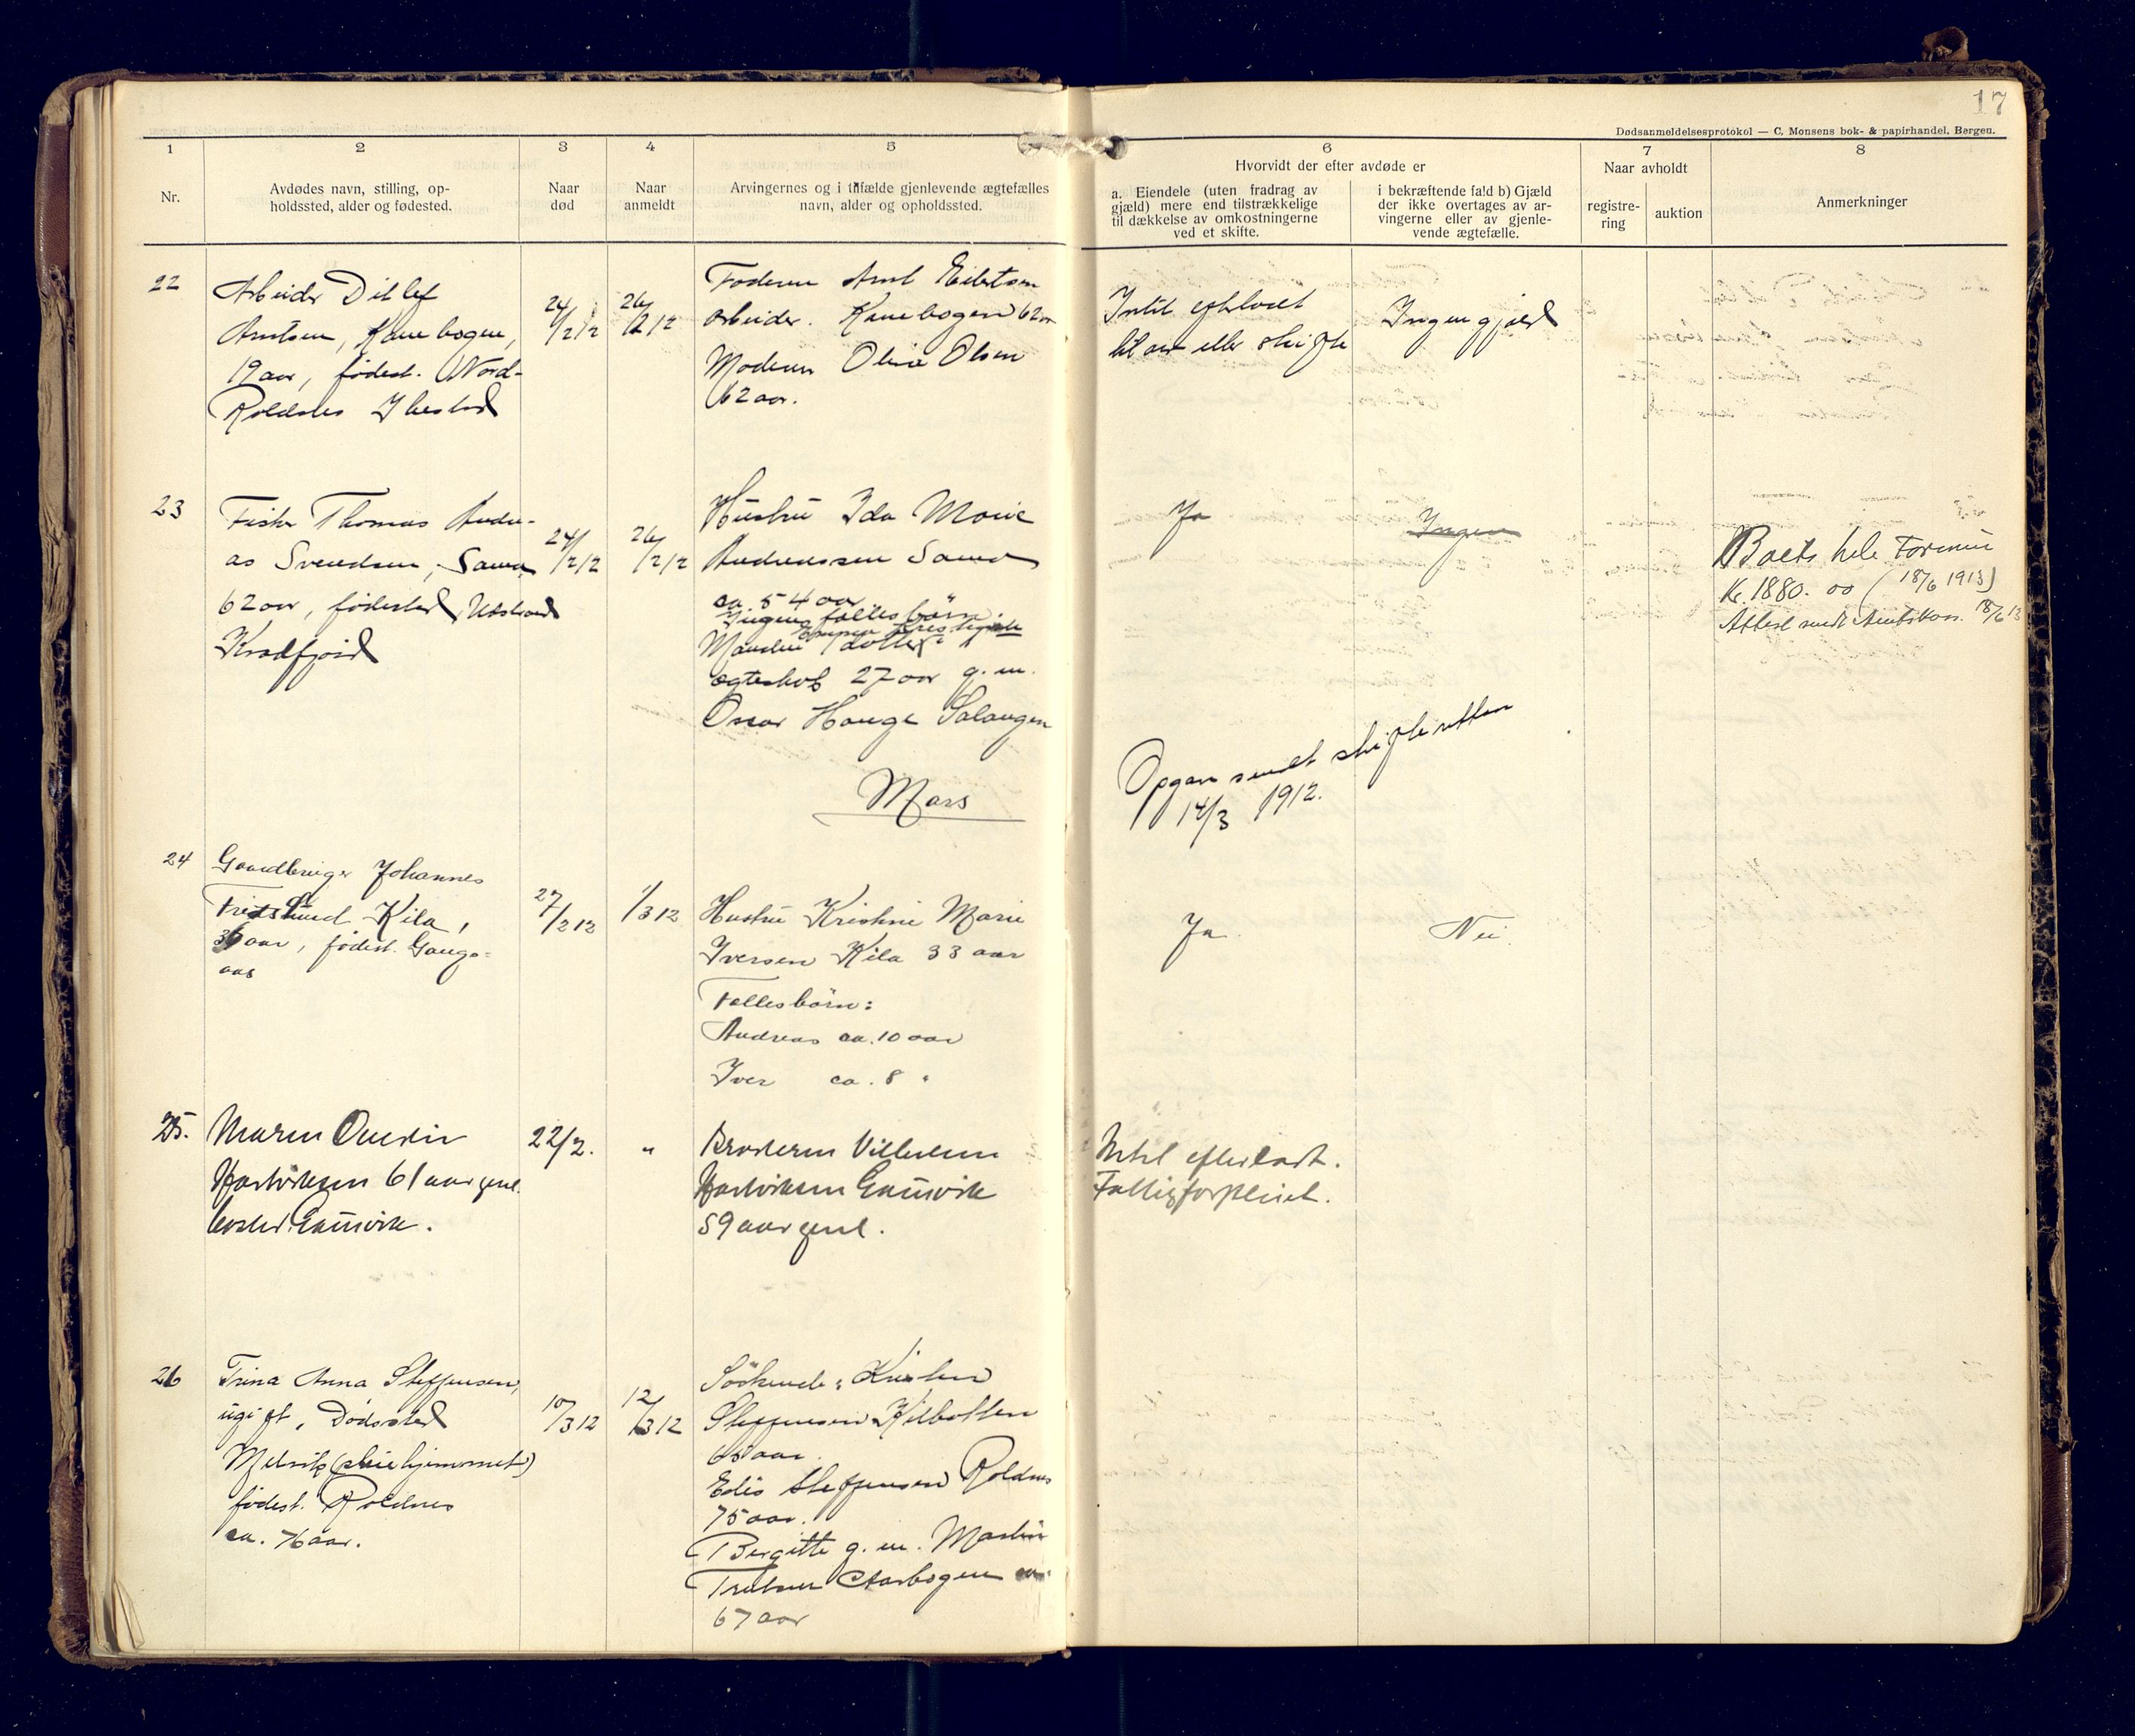 17
Dødsanmeldelsesprotokol — C. Monsens bok- & papirhandel, Bergen.
1
Nr.
2
Avdødes navn, stilling, op-
holdssted, alder og fødested.
3
Naar
død
4
Naar
anmeldt
5
Arvingernes og i tilfælde gjenlevende ægtefælles
navn, alder og opholdssted.
6
Hvorvidt der efter avdøde er
a. Eiendele (uten fradrag av
gjæld) mere end tilstrækkelige
til dækkelse av omkostningerne
ved et skifte.
i bekræftende fald b) Gjæld
der ikke overtages av ar-
vingerne eller av gjenle-
vende ægtefælle.
7
Naar avholdt
registre-
ring
auktion
8
Anmerkninger
22
Arbeider Ditlef
Arntsen, Kanebogen,
19 aar, fødest. Nord-
Roldnes Ibestad
24/2 12
26/2 12
Faderen Arnt Eilertsen
arbeider. Kanebogen 62 aar
Moderen Oline Olsen
62 aar.
Intet efterladt
til arv eller skifte
Ingen gjæld
23
Fisker Thomas Andre-
as Svendsen, Sama
62 aar, fødested
Kvædfjord
24/2 12
26/2 12
Hustru Ida Marie
Andreassen Sama
ca. 54 aar
Ingen fællesbörn.
Manden datter
ægteskab 27 aar g. m.
Oscar Hauge Salangen
Ja
Ingen
Boets hele Formue
Kr. 1880. 00 (18/6 1913)
Attest sendt Amtskas. 18/6 13
Opgave sendt skifteretten
14/3 1912.
Mars
24
Gaardbruger Johannes
Kila,
aar, fødest. Gangs-
aas
27/2 12
1/3 12
Hustru Kristine Marie
Iversen Kila 33 aar
Fællesbörn:
Andreas ca. 10 aar
Iver ca. 8 "
Ja
Nei.
25.
Maren
Hartviksen 61 aar gml.
bosted Gausvik.
22/2.
"
Broderen Villulm
Hartviksen Gausvik
59 aar gml.
Intet efterladt.
Fattigforpleiet.
26
Trina Anna Steffensen,
ugift, Dødssted
Melvik (pleiehjemmet)
fødest. Roldnes
ca. 76 aar.
10/3 12
12/3 12
Söskende: Kristen
Steffensen Kilbotten
65 aar.
Edis Steffensen Roldnes
75 aar.
Bergitte g. m. Martin
Aarbogen
67 aar